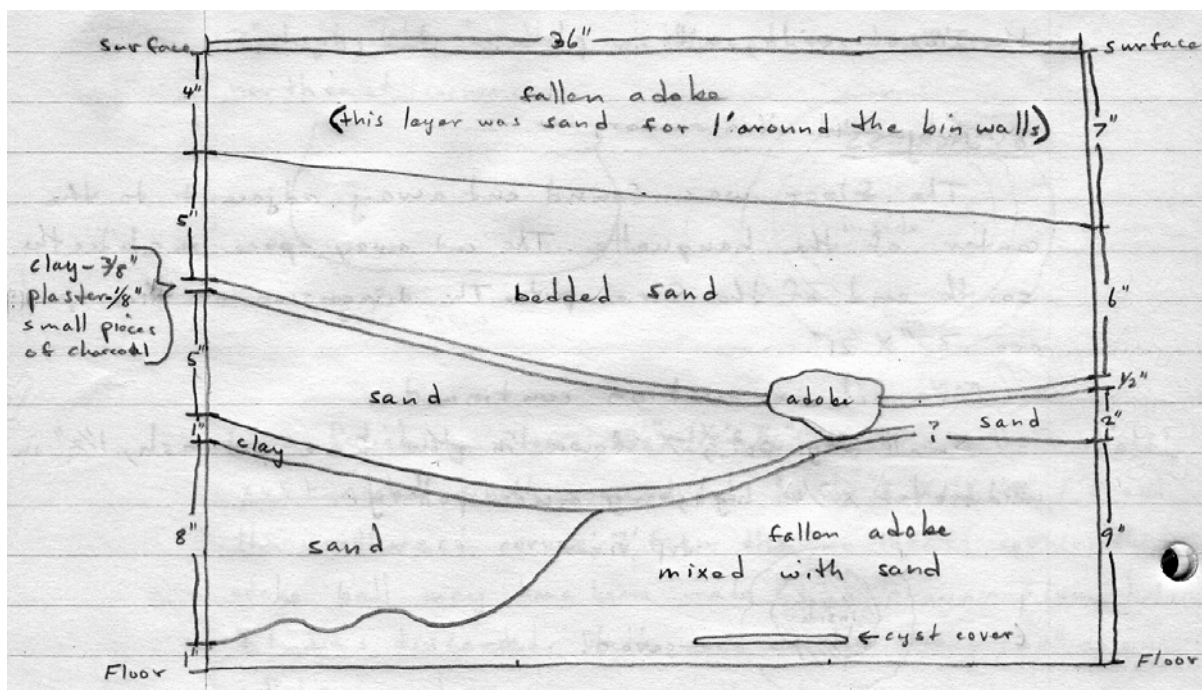 surface 36" surface
4"
fallen adobe
(this layer was sand for 1' around the bin walls)
7"
5"
clay-3/8"
plaster-1/8"
small pieces
of charcoal
bedded sand
6"
5"
sand
adobe
1/2"
sand
2"
1"
clay
?
8"
sand
fallen adobe
mixed with sand
9"
←cyst cover
1"
Floor
Floor